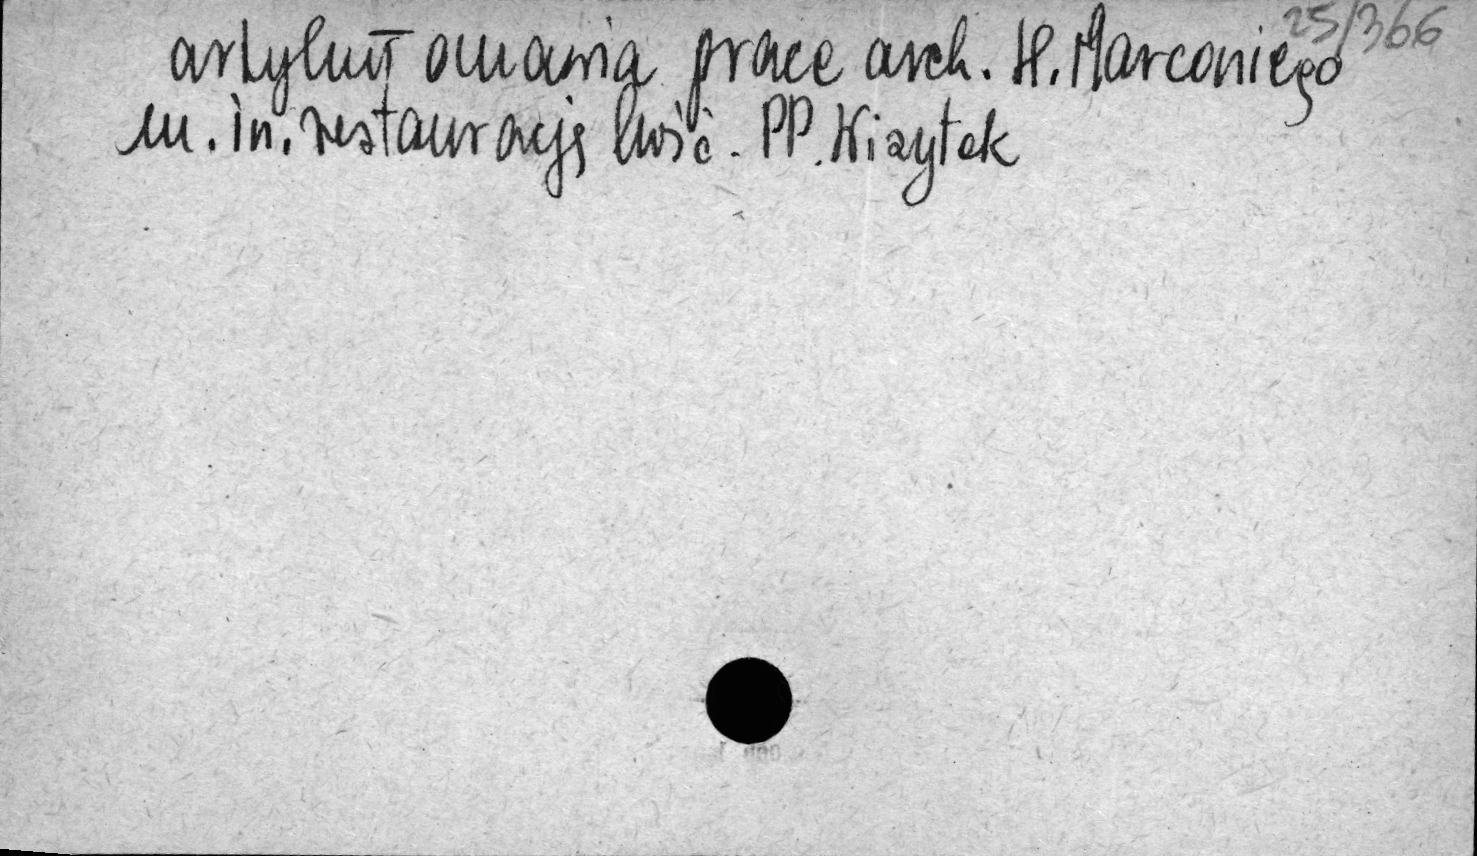 25/366
artykuł omawia prace arch. H. Marconiego
m. in. restaurację kość. PP. Wizytek